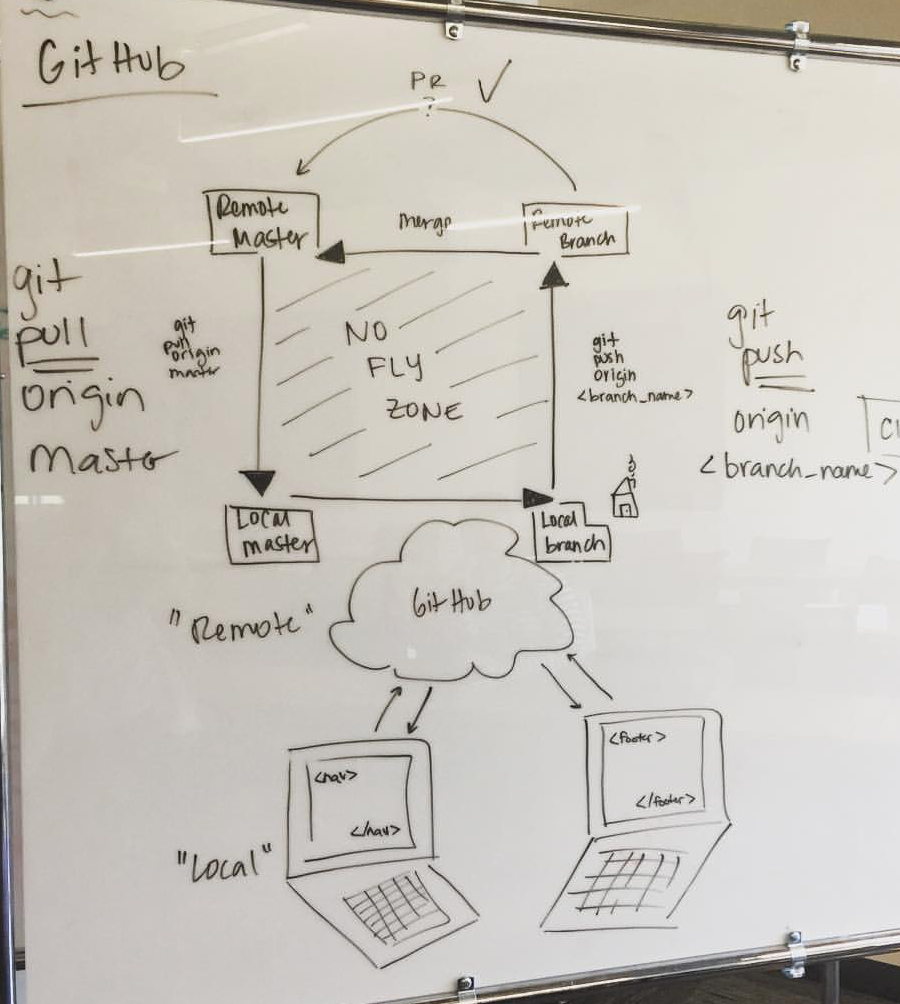 GitHub
PR
?
Remote
Master
merge
Remote
Branch
git
pull
origin
master
git
pull
origin
master
NO
FLY
ZONE
git
push
origin
<branch_name>
git
push
origin
<branch_name>
Local
master
Local
branch
GitHub
"Remote"
<nav>
</nav>
<footer>
</footer>
"Local"